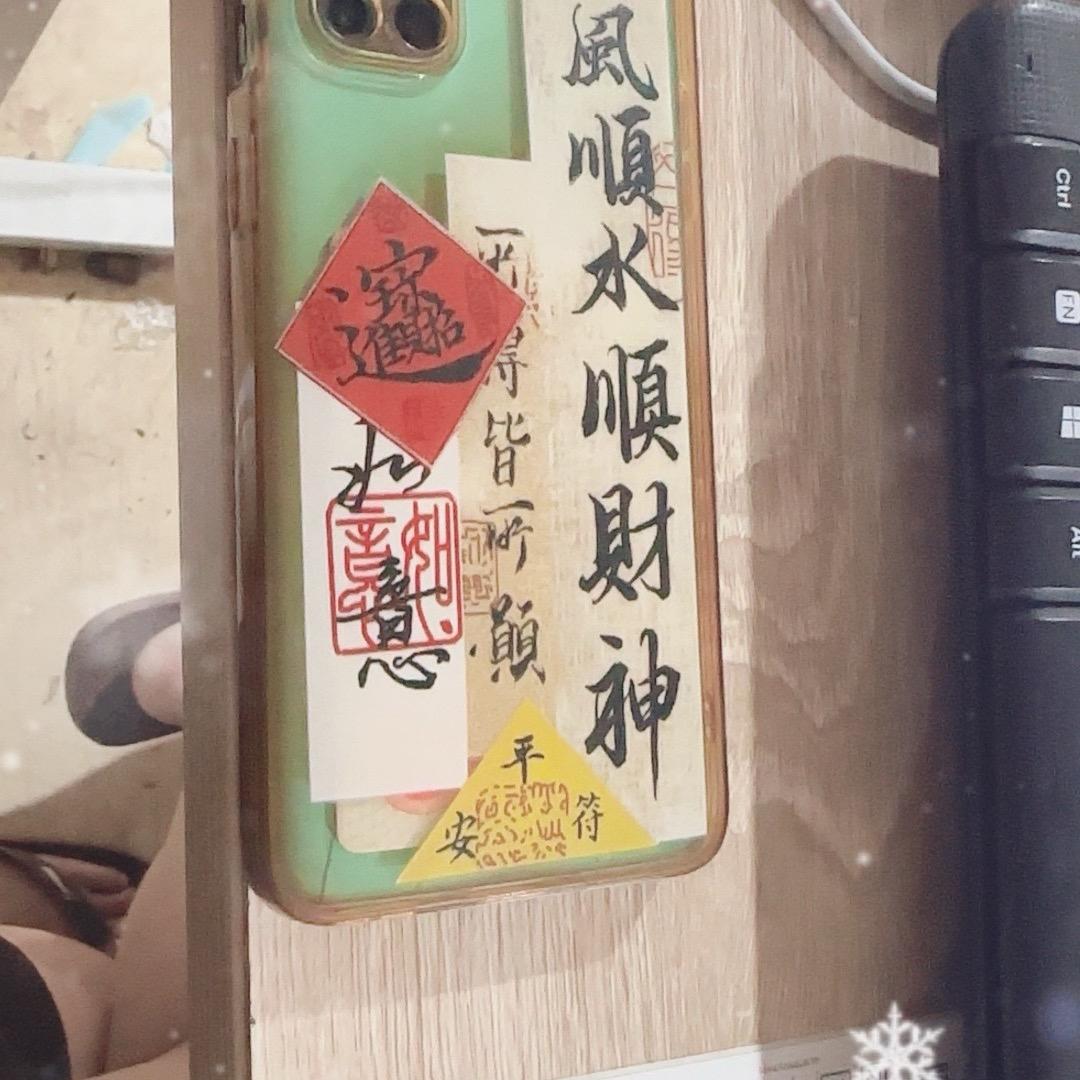 風順水順財神
所得皆所願
招財進寶
如意
如意
平安符
Ctrl
FN
Alt